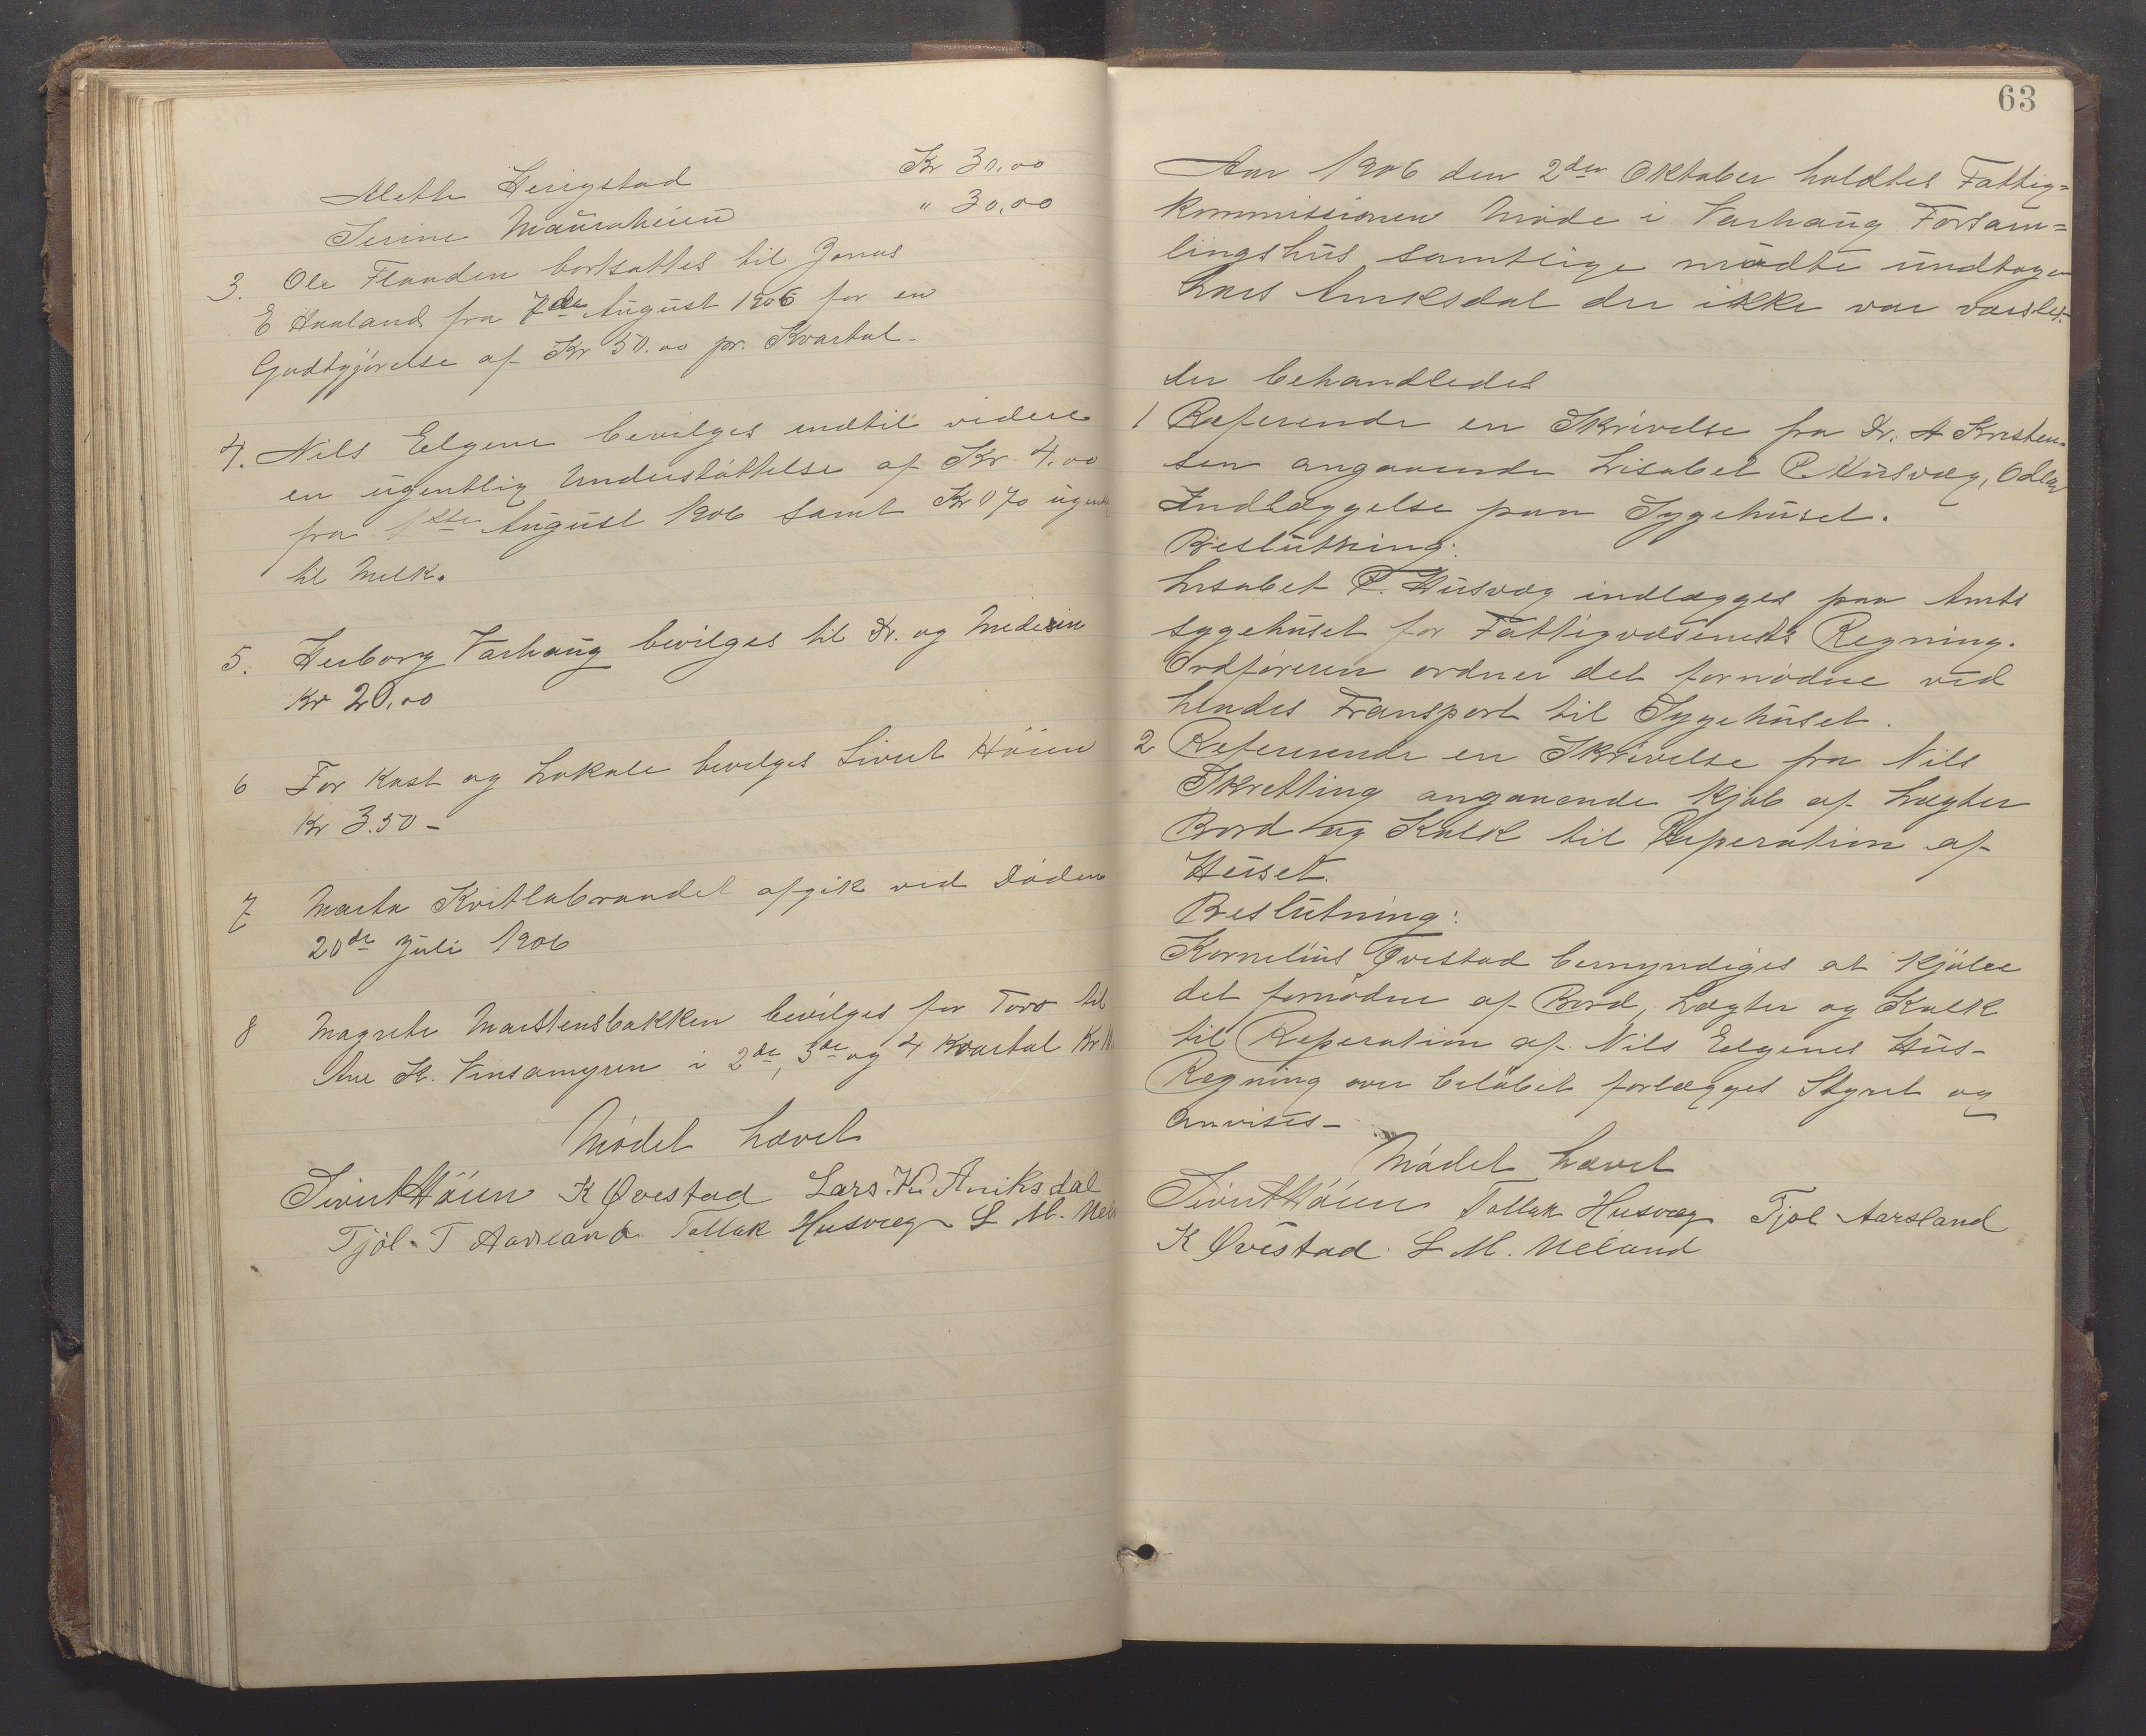 Mette Herigstad Kr 30,00
Serine Mauraheien " 30,00
3. Ole Flaaden bortsattes til Jonas
E Haaland fra 7de August 1906 for en
Godtgjörelse af Kr 50.00 pr. Kvartal-
4. Nils Eelgene bevilges indtil videre
en ugentlig Understöttelse af Kr 4.00
fra 1ste August 1906 samt Kr 0 70 ugentl
til Melk.
5. Herborg Varhaug bevilges til Dr. og Medesin
Kr 20,00
6 For Kost og Lokale bevilges Sivert Höien
Kr 3.50-
7 Marta Kvitlabrandet afgik ved Döden
20de Juli 1906
8 Magrete Martensbakken bevilges for Torv til
Ane K. Vinsamyren i 2de, 3de og 4 Kvartal Kr
Mödet hævet
Sivert Höien K Øvestad Lars. Kr. Aniksdal
Tjöl. T Aarsland Tollak Husvæg L M. Uel
63
Aar 1906 den 2den Oktober holdtes Fattig=
kommissionen Möde i Varhaug Forsam=
lingshus samtlige mödte undtagen
Lars Aniksdal der ikke var varslet.
der behandledes
1 Referende en Skrivelse fra Dr. A Kristen-
sen angaaende Lisabet P Husvæg, Odlav
Indlæggelse paa Sygehuset.
Beslutning:
Lisabet P. Husvæg indlægges paa Amts
sygehuset for Fattigvæsenets Regning.
Ordföreren ordner det fornödne ved
hendes Transport til Sygehuset.
2 Refererende en Skrivelse fra Nils
Skretting angaaende Kjöb af Lægter
Bord og Kalk til Reperation af
Huset.
Beslutning:
Kornelius Øvestad bemyndiges at kjöbe
det fornödne af Bord, Lægter og Kalk
til Reperation af Nils Eelgenes Hus-
Regning over belöbet forlægges Styret og
anvises-
Mödet hævet
Sivert Höien Tollak Husvæg Tjöl Aarsland
K Øvestad. L M. Ueland